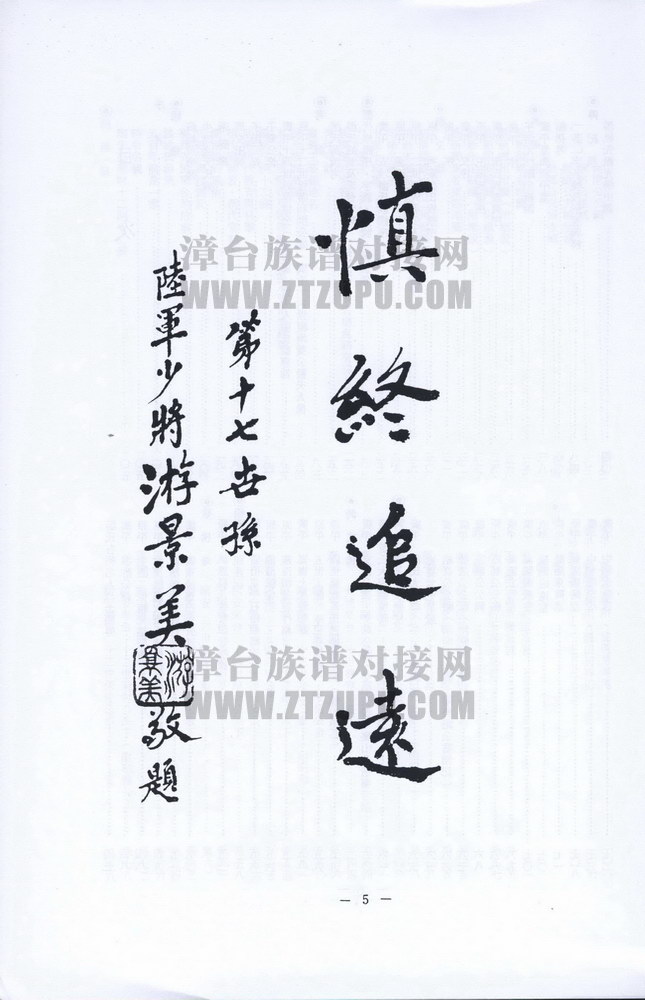 慎終追遠
第十七世孫
陸軍少將游景美敬題
游景美
漳台族谱对接网
WWW.ZTZUPU.COM
漳台族谱对接网
WWW.ZTZUPU.COM
— 5 —